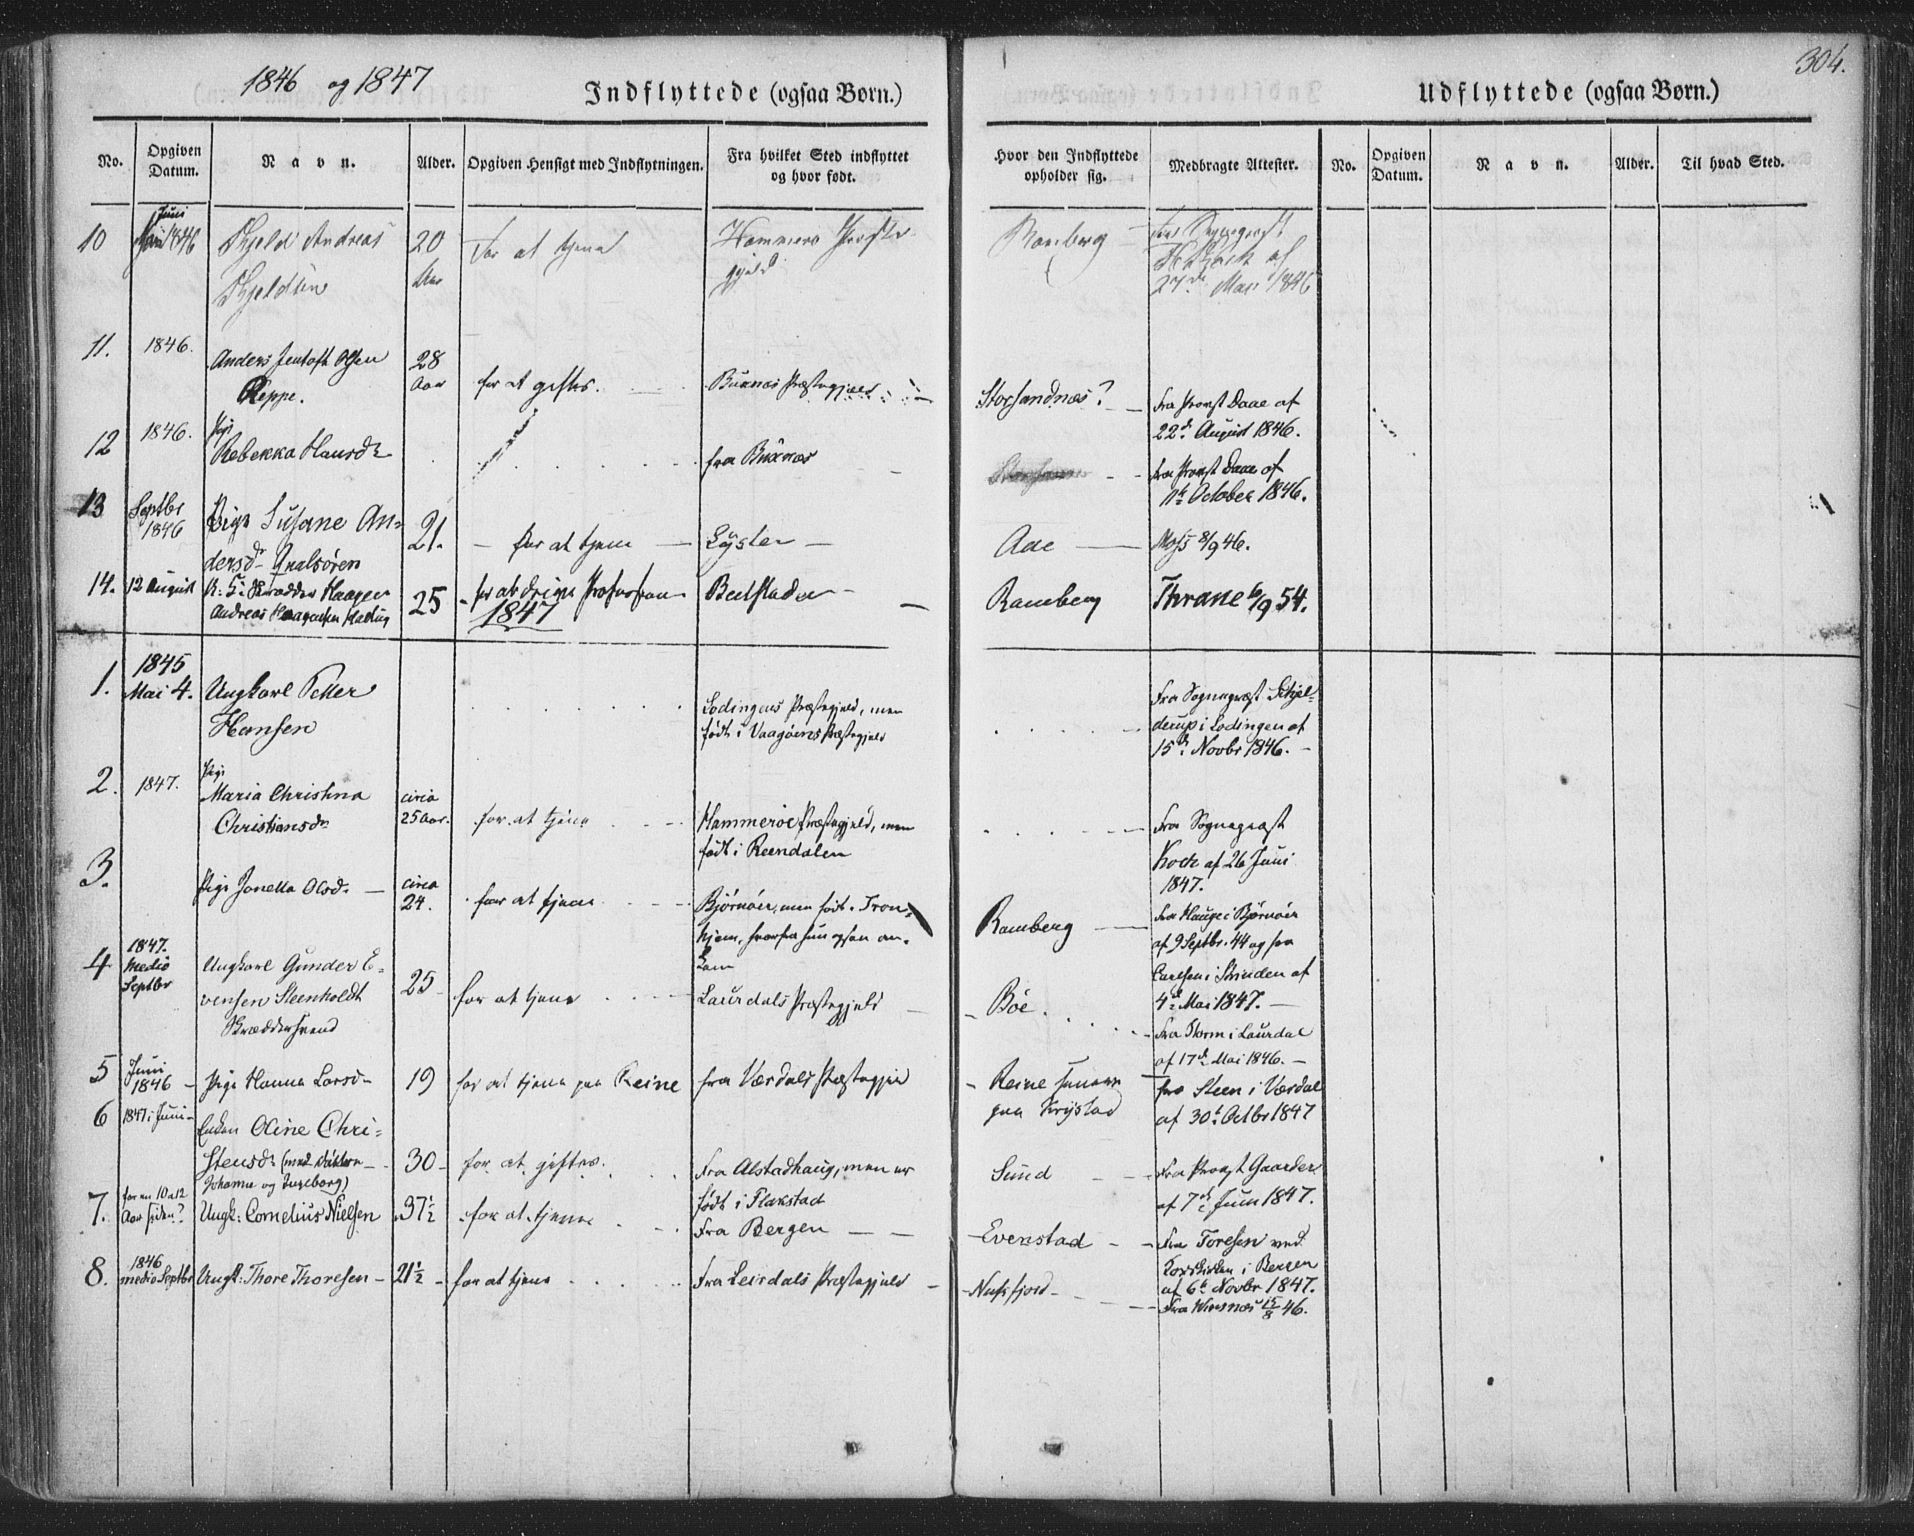 1846 og 1847
Indflyttede (ogsaa Børn.)
No.
Opgiven Datum.
Navn.
Alder.
Opgiven Hensigt med Indflytningen.
Fra hvilket Sted indflyttet og hvor født.
10
Juni 1846
Kjeld Andreas
Kjeldsen
20
for at tjene
Hammerø Præste-
gjeld
11.
1846.
Anders Jentoft Olsen
Reppe.
28
Aar
for at giftes.
Buxnæs Præstegjeld
12
1846.
Pige
Rebekka Hansdr
fra Buxnæs
13
Septbr
1846
Pige Susane An-
dersdr
21.
for at tjene
Lyster
14.
12 August
Andreas Haagensen
25
1847
Beelstaden
1.
1845
Mai 4.
Ungkarl Petter
Hansen
Lodingens Præstegjeld, men
født i Vaagøens Præstegjeld
2.
1847.
Pige
Maria Christina
Christiansdr
circa
25 Aar.
for at tjene
Hammerøe Præstegjeld, men
født i Reendalen
3.
Pige Jonetta Olsdr
circa
24.
for at tjene
Bjørnøer, men født i Tron-
hjem, hvorfra hun ogsaa an-
kom
4
1847.
Medio
Septbr
Ungkarl Gunder E-
vensen Steenholdt
Skræddersvend
25
for at tjene
Laurdals Præstegjeld
5
Juni
1846
Pige Hanna Larsdr
19
for at tjene paa Reine
fra Værdals Præstegjeld
6
1847 i Juni
Enken Oline Chri-
stensdr (med Døttrene
Johanna og Ingeborg)
30
for at giftes.
Fra Alstadhaug, men er
født i Flakstad
7.
for en 10 a 12
Aar siden?
Ungk: Cornelius Nielsen
37½
for at tjene
Fra Bergen
8.
1846
medio Septbr
Ungk: Thore Thoresen
21½
for at tjene
Fra Leirdals Præstegjeld
304.
Udflyttede (ogsaa Børn.)
Hvor den Indflyttede opholder sig.
Medbragte Attester.
No.
Opgiven Datum.
Navn.
Alder.
Til hvad Sted.
Ramberg
fra Sognepræst
Koch af
27de Mai 1846
Storsandnæs?
Fra Provst Daae af
22d August 1846.
fra Provst Daae af
11te October 1846.
Ade
Moss 8/9 46.
Ramberg
Thrane 6/9 54.
Fra Sognepræst Schjel-
derup i Lodingen af
15de Novbr 1846.
Fra Sognepræst
Koch af 26 Juni
1847.
Ramberg
Fra Hauge i Bjørnøer
af 9 Septbr. 44 og fra
Carlsen i Strinden af
4de Mai 1847.
Böe
Fra Storm i Laurdal
af 17de Mai 1846.
Reine
paa Krystad
fra Steen i Værdal
af 30te Octbr 1847
Sund
Fra Provst Gaarder
af 7de Juni 1847.
Evenstad
Fra Toresen ved
Korskirken i Bergen
af 6te Novbr 1847.
Nussfjord
Fra 15/8 46.